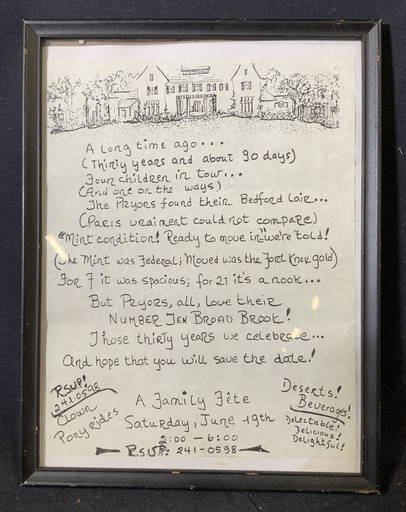 A Long time ago...
(Thirty years and about 90 days)
Four children in tow...
(And one on the ways)
The Pryors found their Bedford lair...
(Paris vraiment could not compare)
"Mint condition! Ready to move in," we're told!
(The Mint was Federal; Moved was the Fort Knox gold)
For 7 it was spacious; for 21 it's a nook...
But Pryors, all, love their
Number Ten Broad Brook!
Those thirty years we celebrate...
And hope that you will save the date!
RSVP!
241.0598
Clown
Pony rides
A Family Fête
Saturday, June 19th
2:00 — 6:00
RSVP: 241-0598
Deserts!
Beverages!
Delectable!
Delicious!
Delightful!